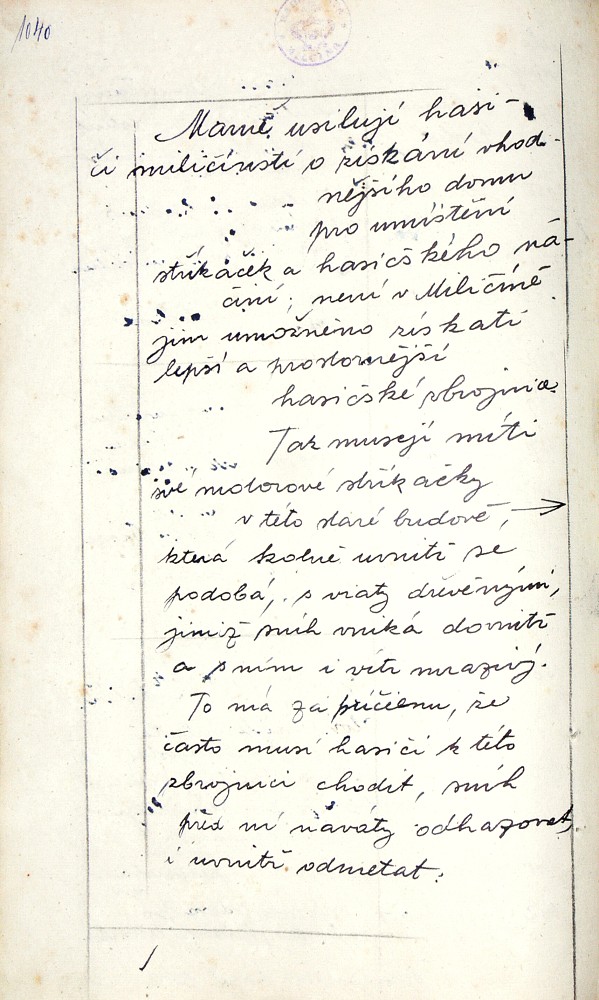 1040
Marně usilují hasi-
či miličínští o získání vhod-
nějšího domu
pro umístění
stříkaček a hasičského ná-
činí; není v Miličíně
jim umožněno získati
lepší a prostornější
hasičské zbrojnice.
Tak musejí míti
své motorové stříkačky
v této staré budově,
která kolně uvnitř se
podobá, s vraty dřevěnými,
jimiž sníh vniká dovnitř
a s ním i vítr mrazivý.
To má za příčinu, že
často musí hasiči k této
zbrojnici chodit, sníh
před ní navátý odhazovat,
i uvnitř odmetat.